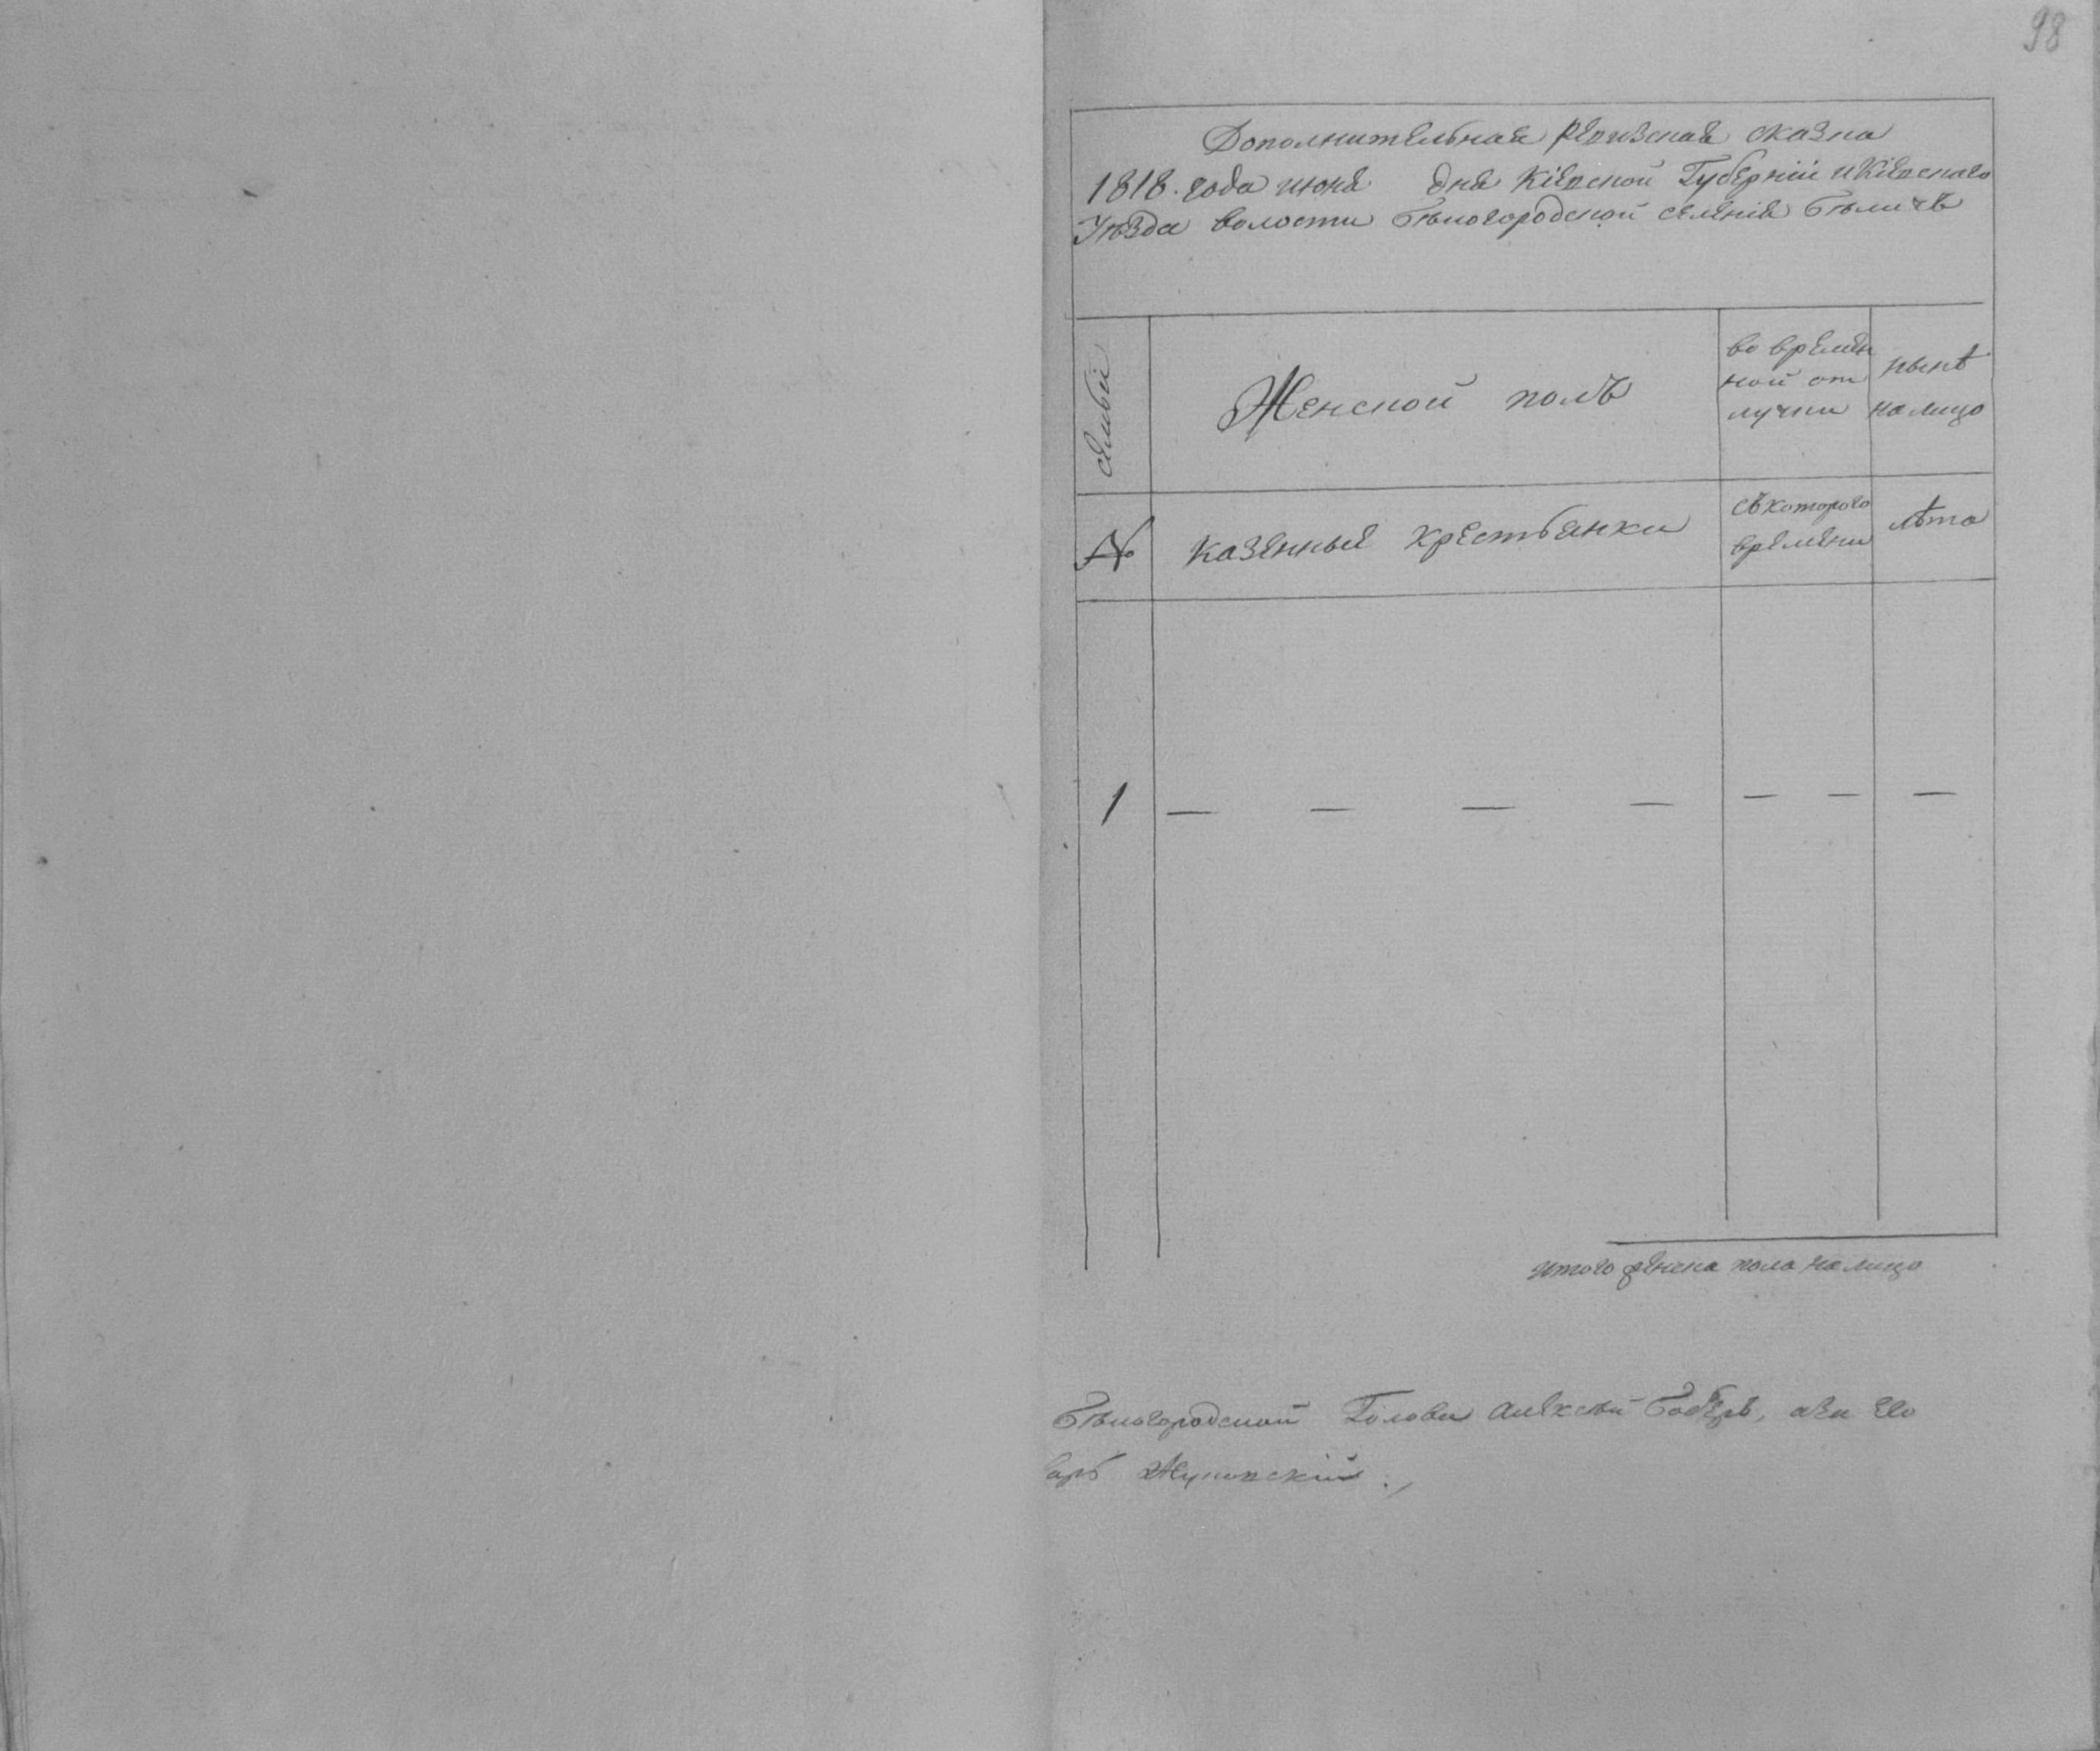 98
Дополнительная ревизская сказка
1818. года июня дня Кіевской Губерніи и Кіевскаго
Уѣзда волости Бѣлогородской селенія Бѣличъ
семьи
Женской полъ
во времен
ной от
лучки
нынѣ
на лицо
№
казенные крестьянки
съ которого
времени
лѣта
1 — — — — — — —
итого женска пола на лицо
Бѣлогородской Голова Алексѣй Боберъ, а за его
арь